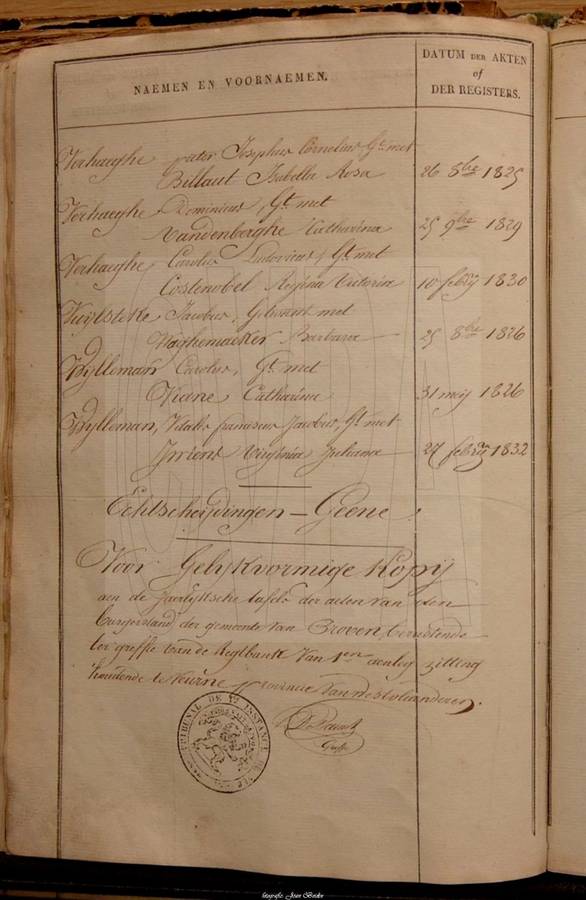 NAEMEN EN VOORNAEMEN.
DATUM DER AKTEN
of
DER REGISTERS.
Verhaeghe pater Josephus Cornelius Gt. met
Billaut Isabella Rosa 26 8bre 1825
Verhaeghe Dominicus, Gt. met
Vandenberghe Catharina 25 9bre 1829
Verhaeghe Carolus Ludovicus, Gt. met
Costenobel Regina Victoria 10 febry 1830
Jacobus, Getrouwt met
Waghemaeker Barbara 25 8bre 1826
Wylleman Carolus, Gt. met
Catharina 31 meij 1826
Wylleman, Vitalis franciscus Jacobus, Gt. met
Virginia Juliana 27 febry 1832
Echtscheijdingen - Geene.
Voor Gelykvormige Kopij
aen de Jaerlyksche tafels der acten van den
burgerstand der gemeente van berustende
ter greffie van de Regtbank van 1en aenleg zitting
houdende te Veurne provincie van Westvlaanderen.
Greffr
TRIBUNAL DE 1re INSTANCE
fotografie: Joan Bodin